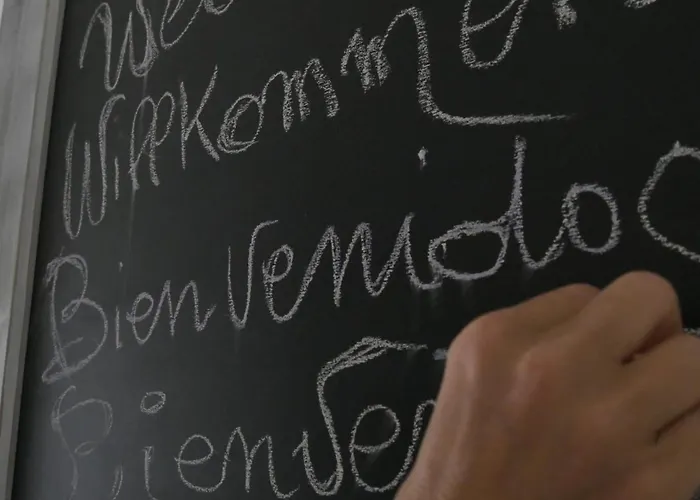 Wel
Willkommen
Bienvenido
Bienve